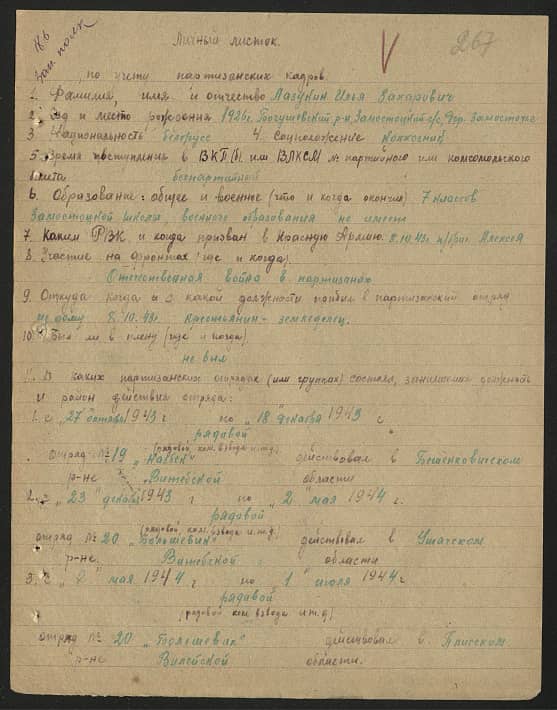 267
Личный листок.
по учету партизанских кадров.
1. Фамилия, имя и отчество Лазукин Илья Захарович
2. Год и место рождения 1926г. Богушевский р-н, Замостоцкий с/с, дер. Замосточье
3. Национальность белорусс 4. Соцположение колхозник
5. Время поступления в ВКП(б) или ВЛКСМ № партийного или комсомольского
билета беспартийной
6. Образование: общее и военное (что и когда окончил) 7 классов
Замостоцкой школы военного образования не имеет
7. Каким РВК и когда призван в Красную Армию: 8.10.43г. п/бриг. Алексея
8. Участие на фронтах (где и когда)
Отечественная война в партизанах
9. Откуда когда и с какой должности прибыл в партизанский отряд
из дому 8.10.43г. крестьянин-земледелец.
10. Был ли в плену (где и когда)
не был
11. В каких партизанских отрядах (или группах) состоял, занимаемая должность
и район действия отряда:
1. с "27" октября 1943 г. по "18" декабря 1943 г
рядовой
(рядовой, ком. взвода и.т.д.)
отряд № 19 действовал в Бешенковичском
р-не Витебской области
2. с "23" декабря 1943 г по "2" мая 1944 г.
рядовой
(рядовой ком. взвода и.т.д.)
отряд № 20 "Большевик" действовал в Ушачском
р-не Витебской области
3. с "2" мая 1944 г по "1" июля 1944 г
рядовой
(рядовой ком. взвода и.т.д)
отряд № 20 "Большевик" действовал в Плисском
р-не Вилейской области.